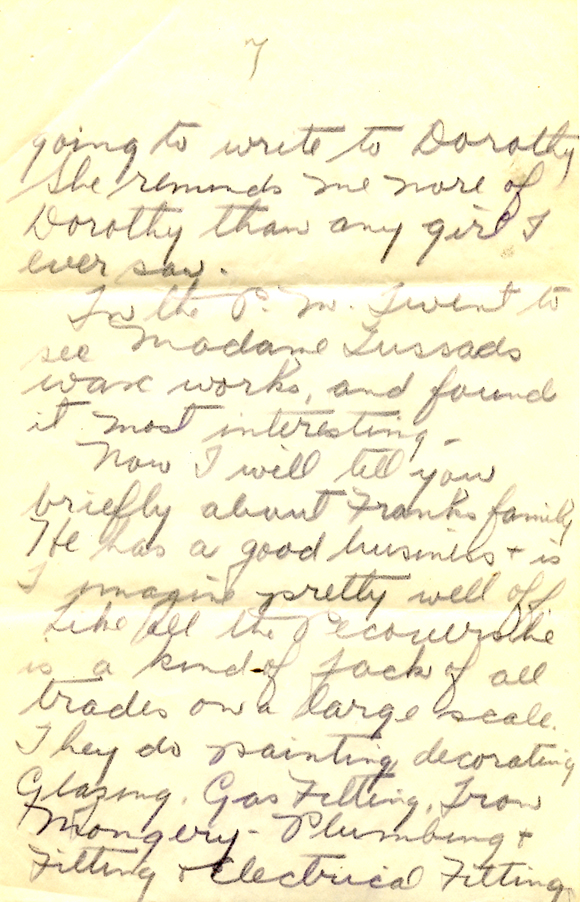 7
going to write to Dorothy
She reminds me more of
Dorothy than any girl I
ever saw.
In the P. M. I went to
see Madame Tussads
wax works, and found
it most interesting -
Now I will tell you
briefly about Franks family
He has a good business + is
I imagine pretty well off
Like all the he
is a kind of Jack of all
trades on a large scale.
They do painting, decorating
Glazing, Gas Fitting, Iron
Mongery - Plumbing +
Fitting + Electrical Fitting,